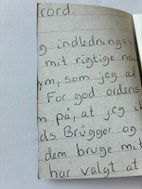 rord.
g indlednings
mit rigtige na
ym, som jeg a
For god ordens
m på, at jeg i
ds Brügger og
dem bruge mit
har valgt at